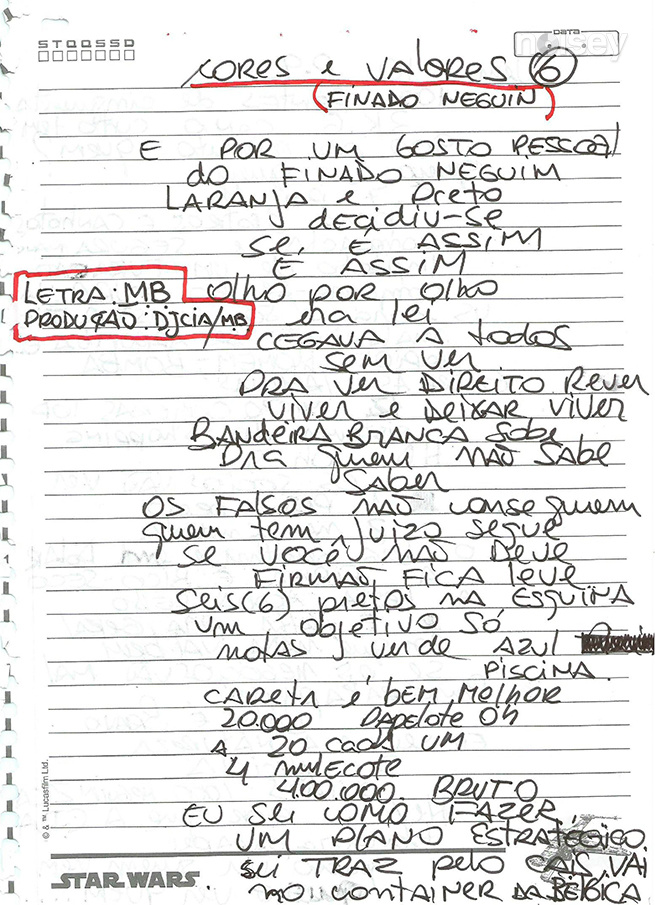 STQQSSD
DATA
noisey
CORES e VALORES 6
(FINADO NEGUIN)
E POR UM GOSTO PESSOAL
do FINADO NEGUIM
LARANJA e Preto
decidiu-se
Sei, É ASSIM
E ASSIM
LETRA: MB
PRODUÇÃO: DJCIA/MB
olho por olho
era lei
CEGAVA A todos
sem ver
PRA ver DIREITO Rever
VIVER e DEIXAR VIVER
BANDEIRA BRANCA Sobe
Pra quem NÃO SAbe
SAber
OS FALSOS NÃO conseguem
quem tem juizo segue
se você NÃO Deve
FIRMÃO FICA leve
Seis(6) pretos na ESQUINA
um objetivo só
notas verde AZUl
PISCINA.
CARETA é bem Melhor
20.000 PApelote Oh
A 20 cada UM
4 mulecote
400.000 BRUTO
EU sei como FAZER,
UM PLANO ESTRATÉGICO
sei TRAZ pelo CAIS, VAI
no container DA BÉLGICA
© & ™ Lucasfilm Ltd.
STAR WARS